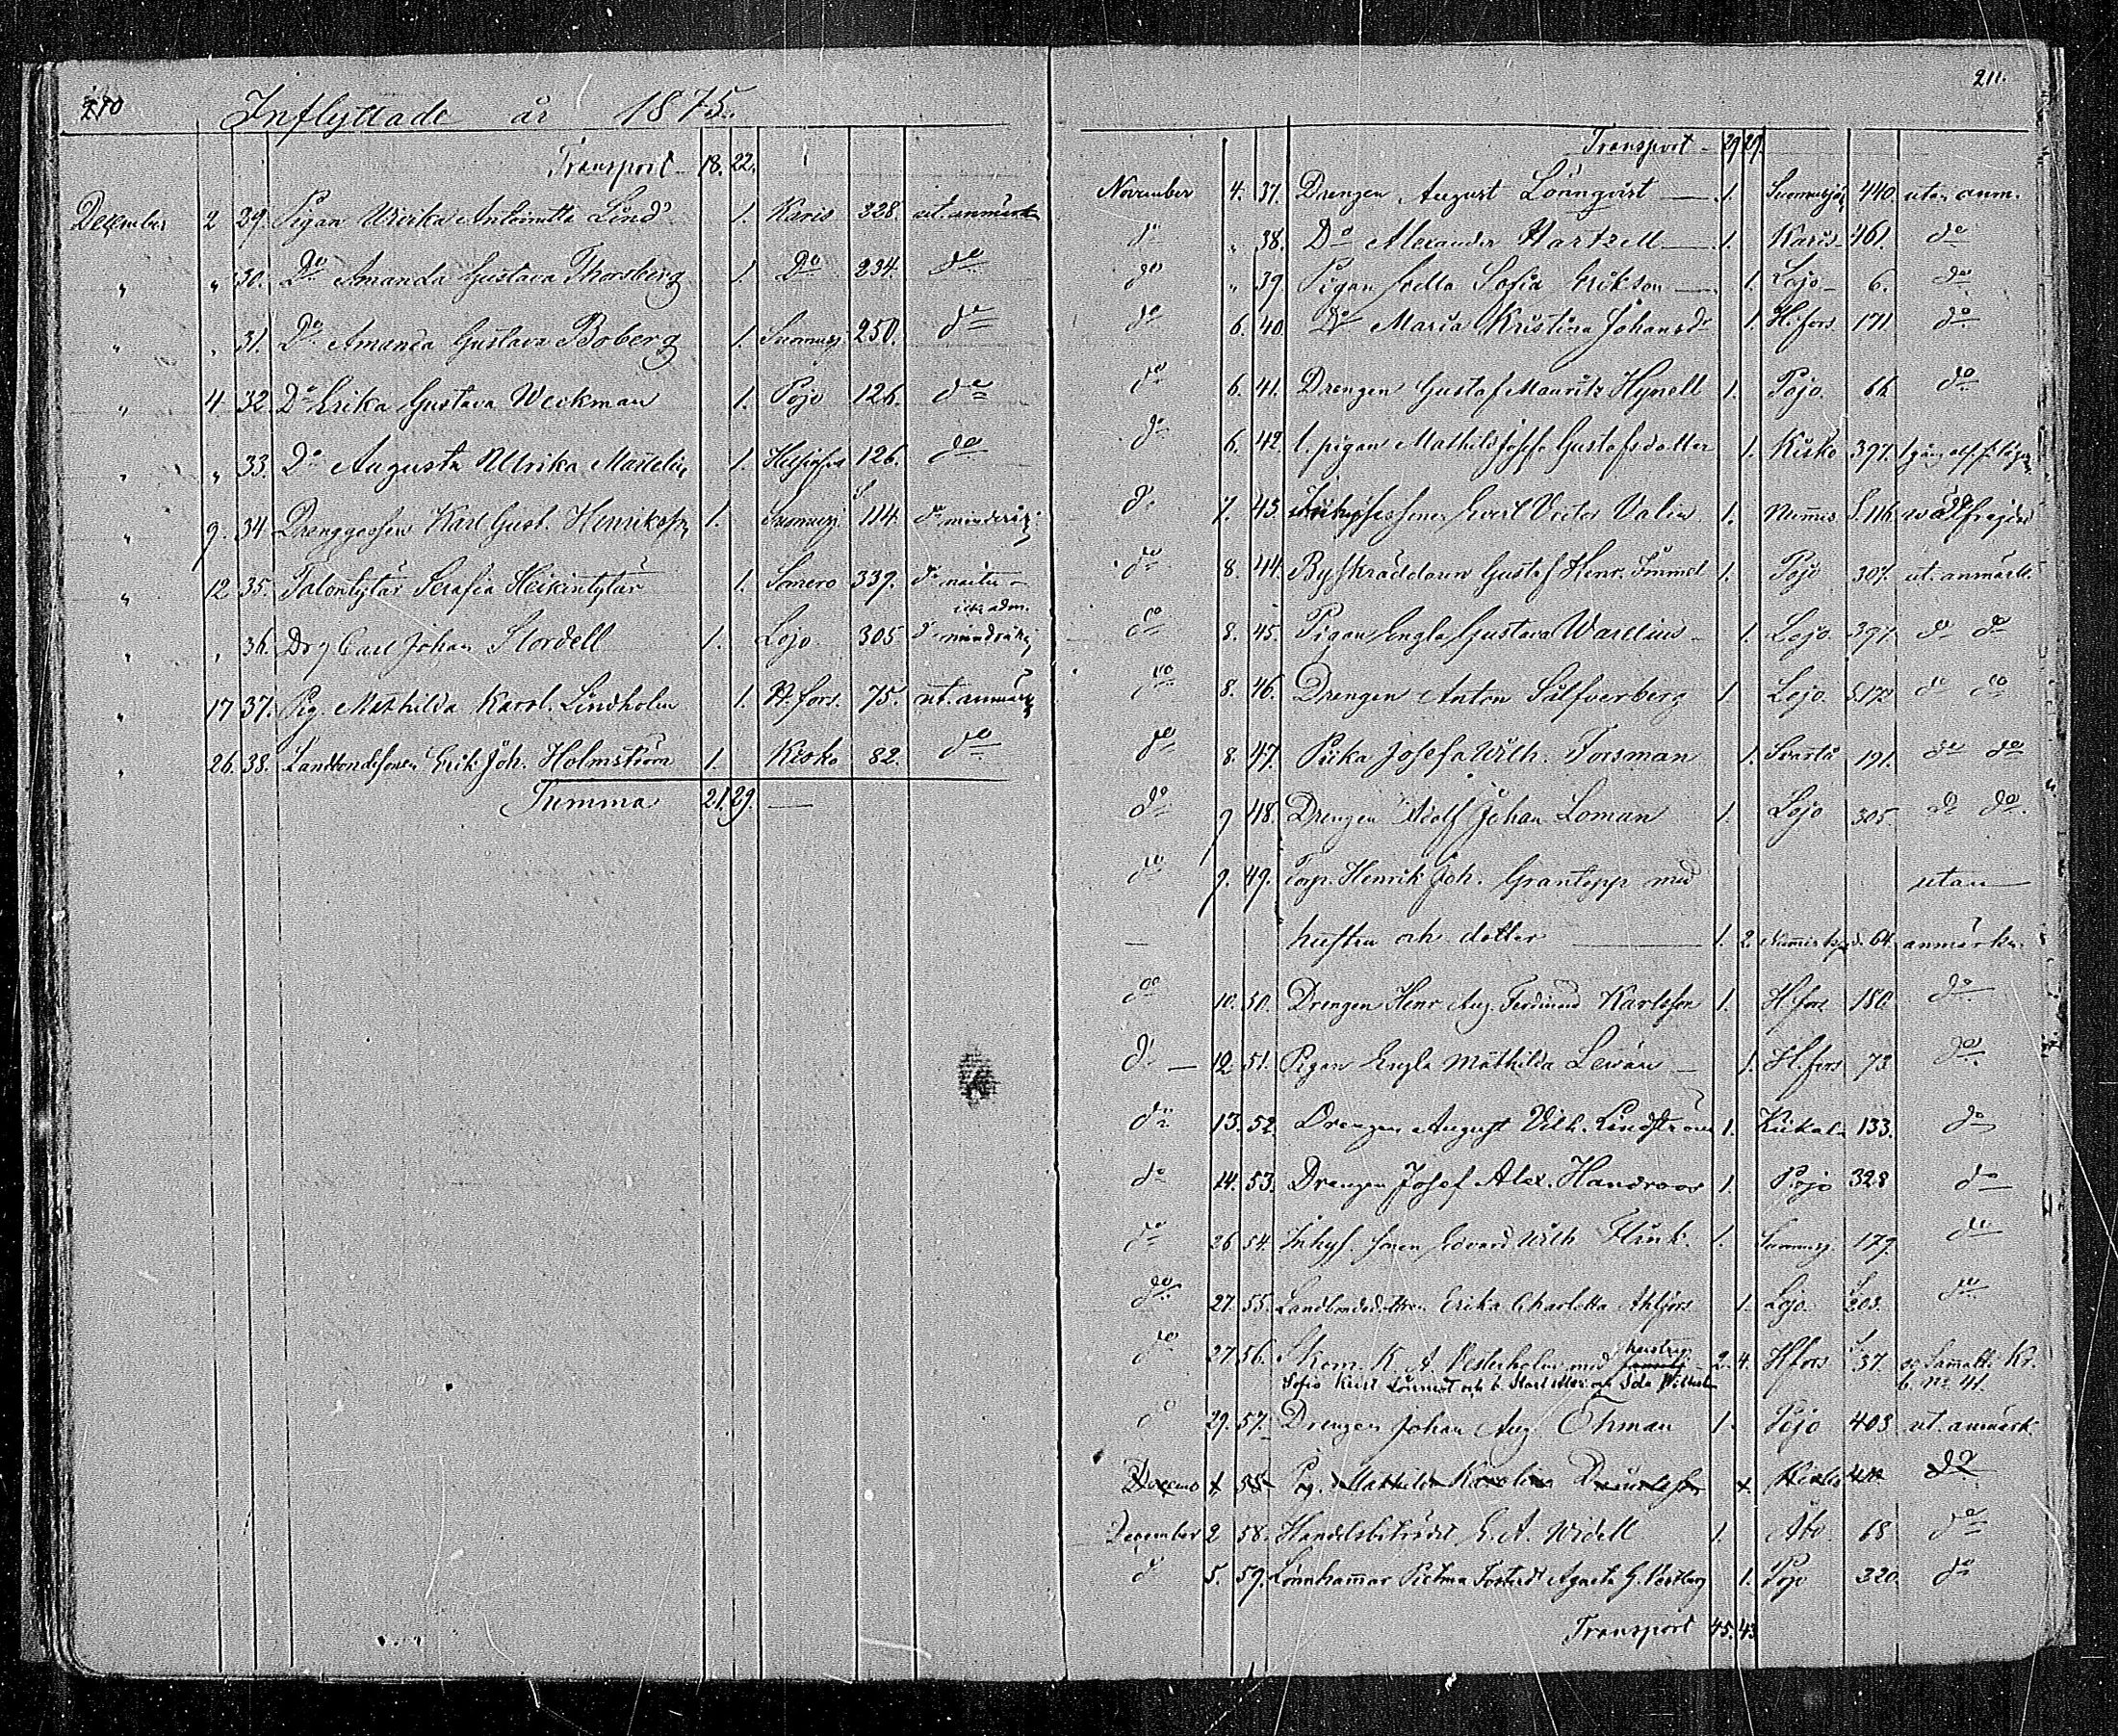 210
Inflyttade år 1875.
Transport 18. 22.
December 2 29. Pigan Ulrika Antoinetta Lind 1. Karis 328. ut. anmärk
" " 30. Do Amanda Gustava Thorsberg 1. Do 234. do
" " 31. Do Amanda Gustava Boberg 1. Suomusj. 250. do
" 4 32. Do Erika Gustava Weckman 1. Pojo 126. do
" " 33. Do Augusta Ulrika 1. Helsingfors 126. do
" 9. 34 Drenggossen Karl Gust. Henriksson 1. Suomusj S. 114. do minderårig
" 12 35. Talontytär Serafia Heikintytär 1. Somero 339. do
icke adm.
" " 36. Drg Carl Johan Stordell 1. Lojo 305 do mindreårig
" 17 37. Pig. Mathilda Karol. Lindholm 1. H.fors. 75. ut. anmärk
" 26. 38. Landbondesonen Erik Joh. Holmström 1. Kisko 82. do
Summa 21. 29.
211.
Transport 29 29.
November 4. 37. Drengen August Lönnqvist 1. Suomusjä 440. utan anm.
do " 38. Do Alexander Hartzell 1. Karis 461. do
do " 39 Pigan Sofia Erikson 1. Lojo 6. do
do 6. 40 Do Maria Kristina Johansdr 1. H.fors 171 do
do 6. 41. Drengen Gustaf Mauritz Hynell 1. Pojo. 66 do
do 6. 42. l. pigan Mathilda Gustafsdotter 1. Kisko 397.
do 7. 43. Evert Victor Valin 1. Nummis S. 116.
do 8. 44. Byskräddaren Gustaf Henr. 1. Pojo 307. ut. anmärk.
do 8. 45. Pigan Engla Gustava Warelius 1. Lojo. 397. do do
do 8. 46. Drengen Anton Silfverberg 1. Lojo. S. 172 do do
do 8. 47. Piika Josefa Wilh. Forsman 1. Svartå 191. do do
do 9 48. Drengen Adolf Johan Loman 1. Lojo 305 do do.
do 9. 49. Torp. Henrik Joh. Grantopp med utan
hustru och dotter 1. 2. 64. anmärkn.
do 10. 50. Drengen Henr Aug. Ferdinand Karlsson 1. H.fors 180. do
do 12. 51. Pigan Engla Mathilda Levän 1. H.fors 73 do
do 13. 52. Drengen August Vilh. Lindström 1. Kiikala 133. do
do 14. 53. Drengen Josef Alex. Handroos 1. Pojo 328 do
do 26 54. Inhys. sonen Edvard Wilh Flink. 1. Suomusj. 179. do
do 27. 55. Landbondedottren Erika Charlotta Ahlfors 1. Lojo S 203. do
do 27. 56. Skom. K. A. Vesterholm med hustru 2. 4. Hfors S 37.
Sofia Krist. och Ida b. No 41.
do 29. 57. Drengen Johan Aug Öhman 1. Pojo 403. ut. anmärk.
58 Pig. Mathilda Karolina do
December 2 58. Handelsbiträdet E. A. Widell 1. Åbo 68 do
do 5. 59. Agneta G. 1. Pojo 320. do
Transport 45. 43